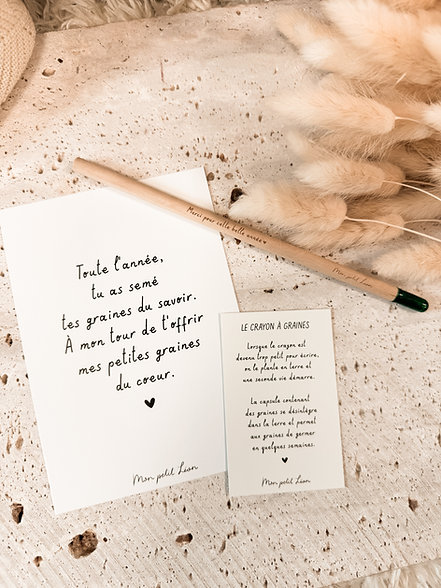 Merci pour cette belle année ♥
Mon petit Léon
Toute l'année,
tu as semé
tes graines du savoir.
À mon tour de t'offrir
mes petites graines
du coeur.
♥
Mon petit Léon
LE CRAYON À GRAINES
Lorsque le crayon est
devenu trop petit pour écrire,
on le plante en terre et
une seconde vie démarre.
La capsule contenant
des graines se désintègre
dans la terre et permet
aux graines de germer
en quelques semaines.
♥
Mon petit Léon